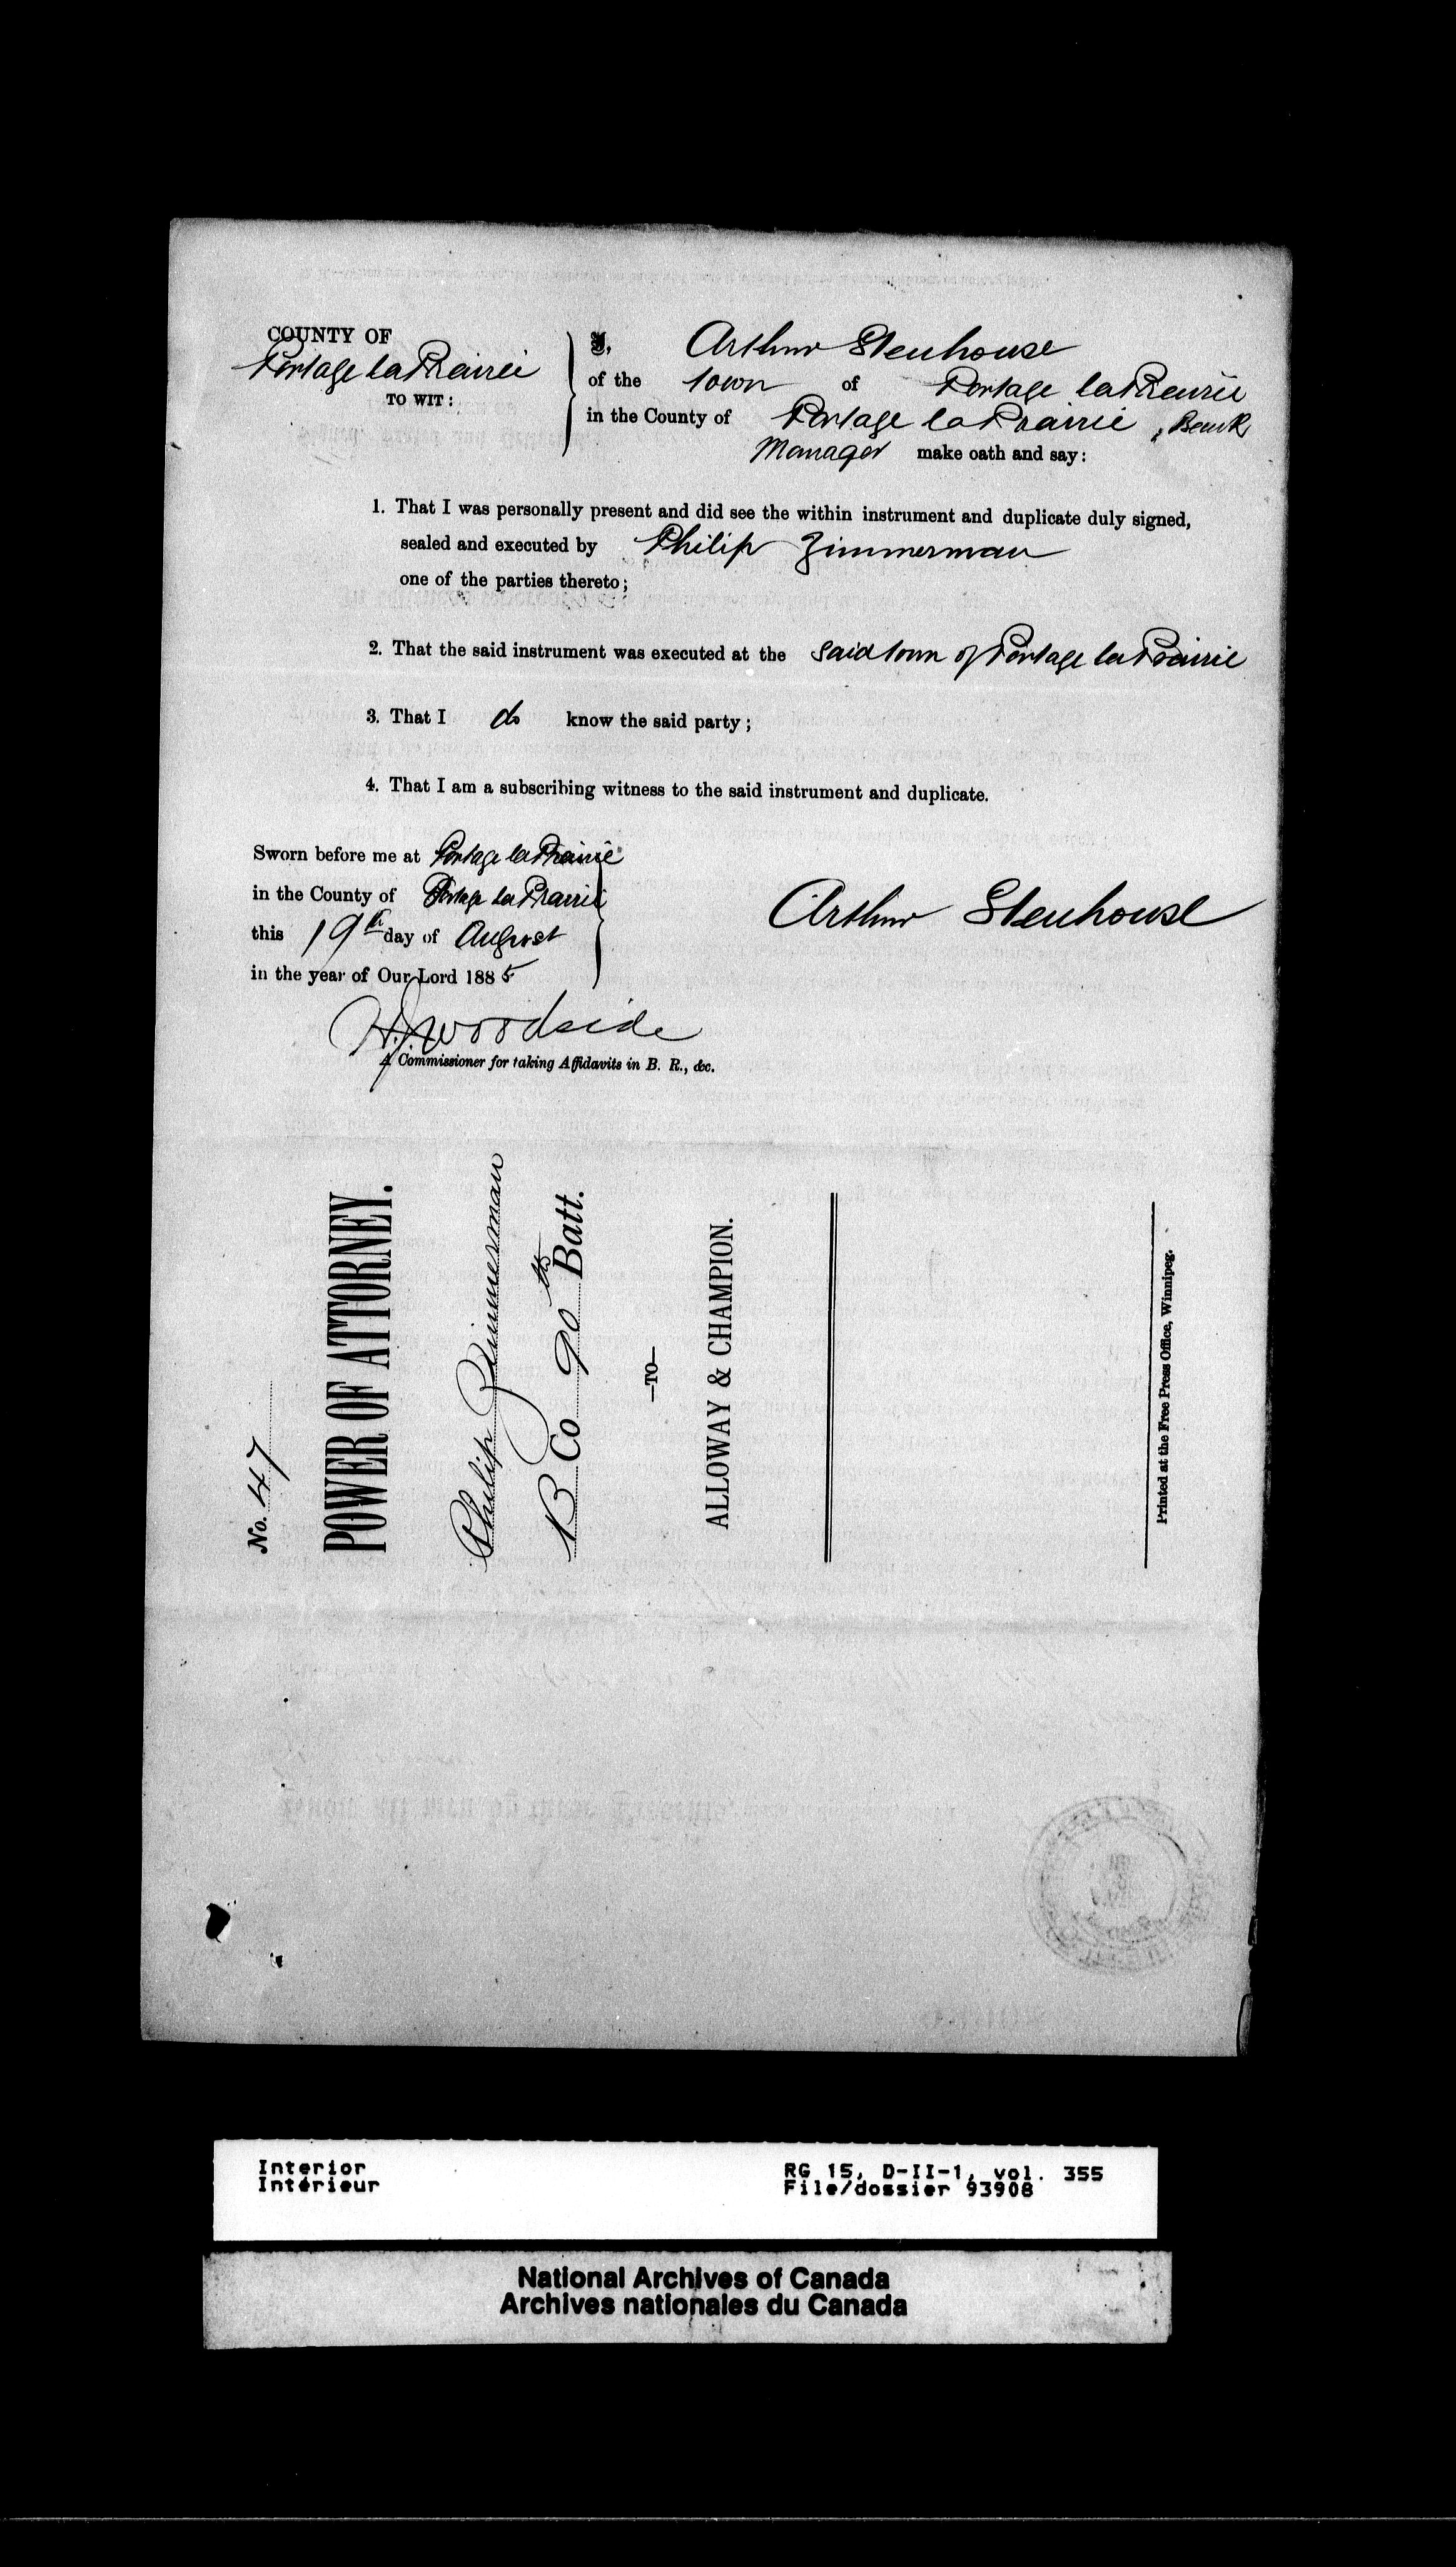 COUNTY OF
Portage la Prairie
TO WIT:
I, Arthur Stenhouse
of the town of Portage la Prairie
in the County of Portage la Prairie, Bank
Manager make oath and say:
1. That I was personally present and did see the within instrument and duplicate duly signed,
sealed and executed by Philip Zimmerman
one of the parties thereto;
2. That the said instrument was executed at the said town of Portage la Prairie
3. That I do know the said party;
4. That I am a subscribing witness to the said instrument and duplicate.
Sworn before me at Portage la Prairie
in the County of Portage la Prairie
this 19th day of August
in the year of Our Lord 1885
Arthur Stenhouse
H.J. Woodside
A Commissioner for taking Affidavits in B. R., &c.
No. 47
POWER OF ATTORNEY.
Philip Zimmerman
B Co 90th Batt.
—TO—
ALLOWAY & CHAMPION.
Printed at the Free Press Office, Winnipeg.
Interior
Intérieur
RG 15, D-II-1, vol. 355
File/dossier 93908
National Archives of Canada
Archives nationales du Canada